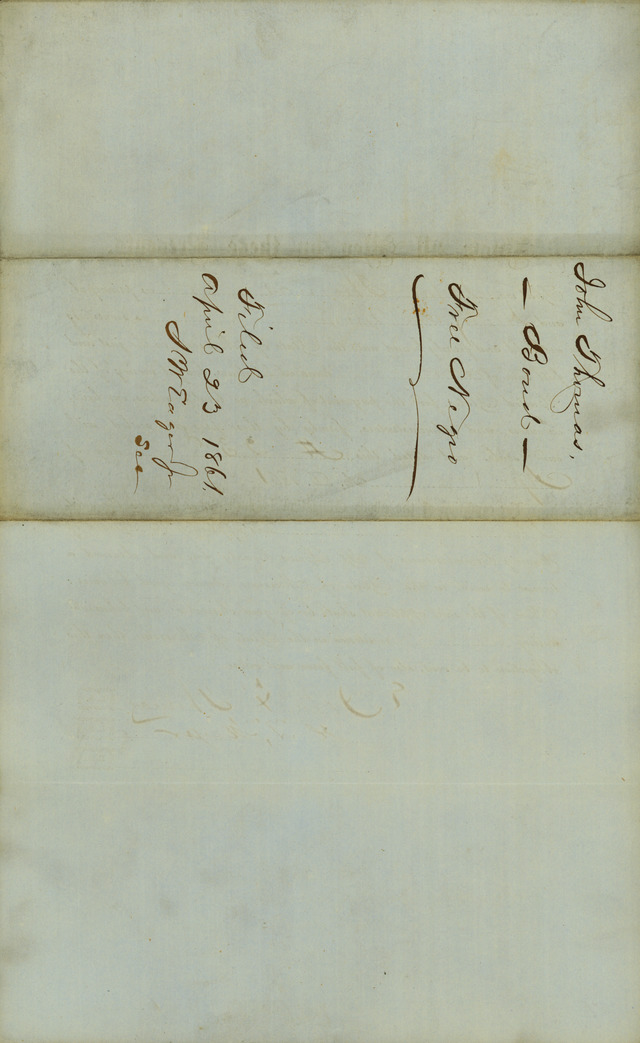 John Thomas,
— Bond —
Free Negro
Filed
April 23 1861.